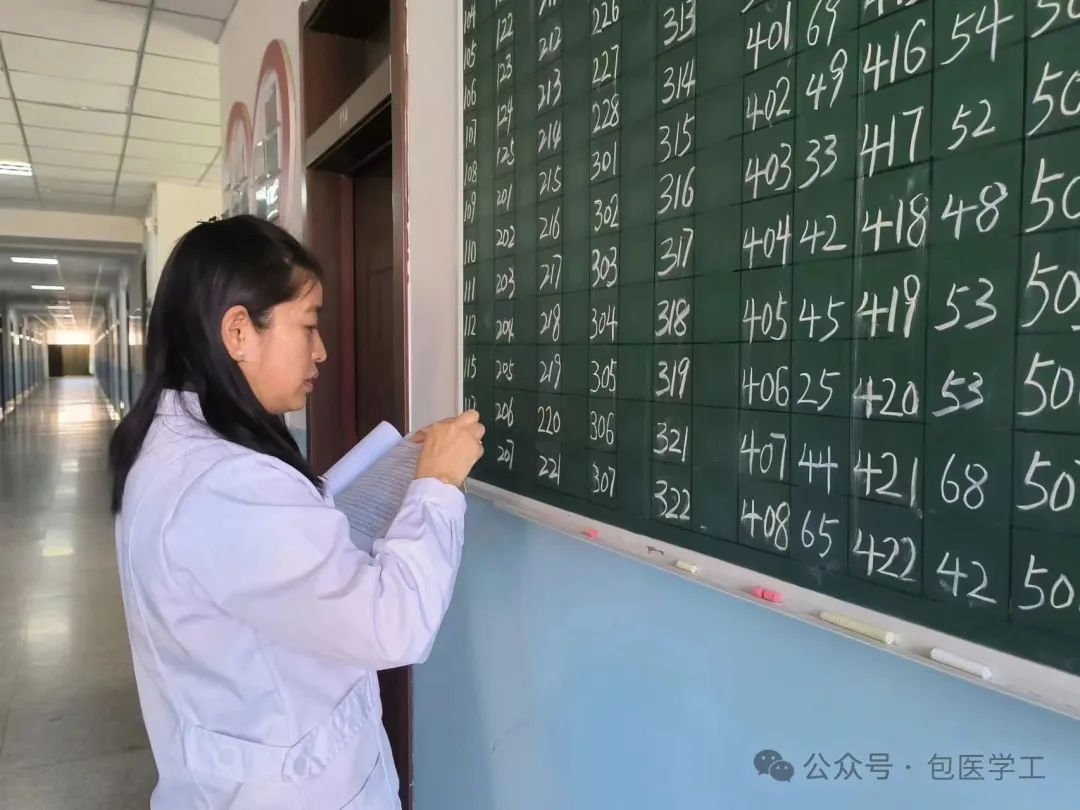 104
105 122
106 123 212 226
107 124 213 227 313
108 125 214 228 314 401 69
109 201 215 301 315 402 49 416 54
110 202 216 302 316 403 33 417 52
111 203 217 303 317 404 42 418 48
112 204 218 304 318 405 45 419 53
115 205 219 305 319 406 25 420 53
206 220 306 321 407 44 421 68
207 221 307 322 408 65 422 42
公众号 · 包医学工